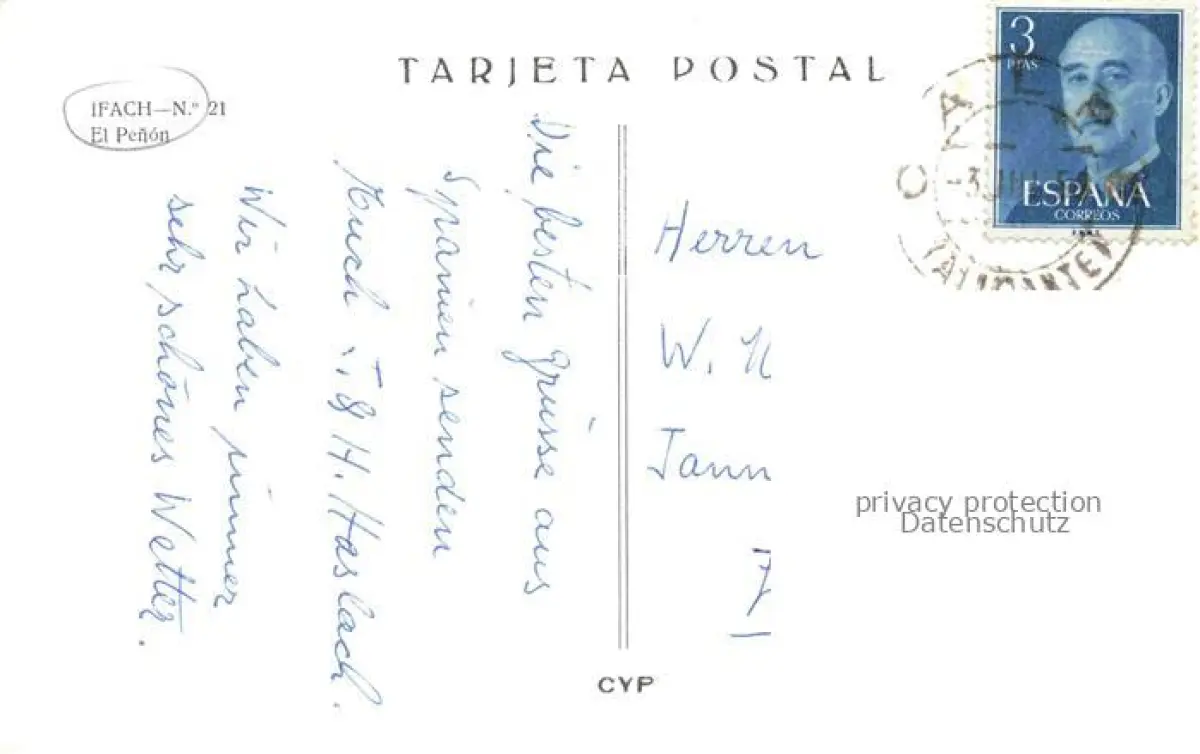 TARJETA POSTAL
IFACH—N.º 21
El Peñón
Die besten Grüsse aus
Spanien senden
Euch H. Haslach.
Wir haben immer
sehr schönes Wetter.
Herren
W.
Tann
CYP
3
PTAS
ESPAÑA
CORREOS
CALPE
(ALICANTE)
privacy protection
Datenschutz